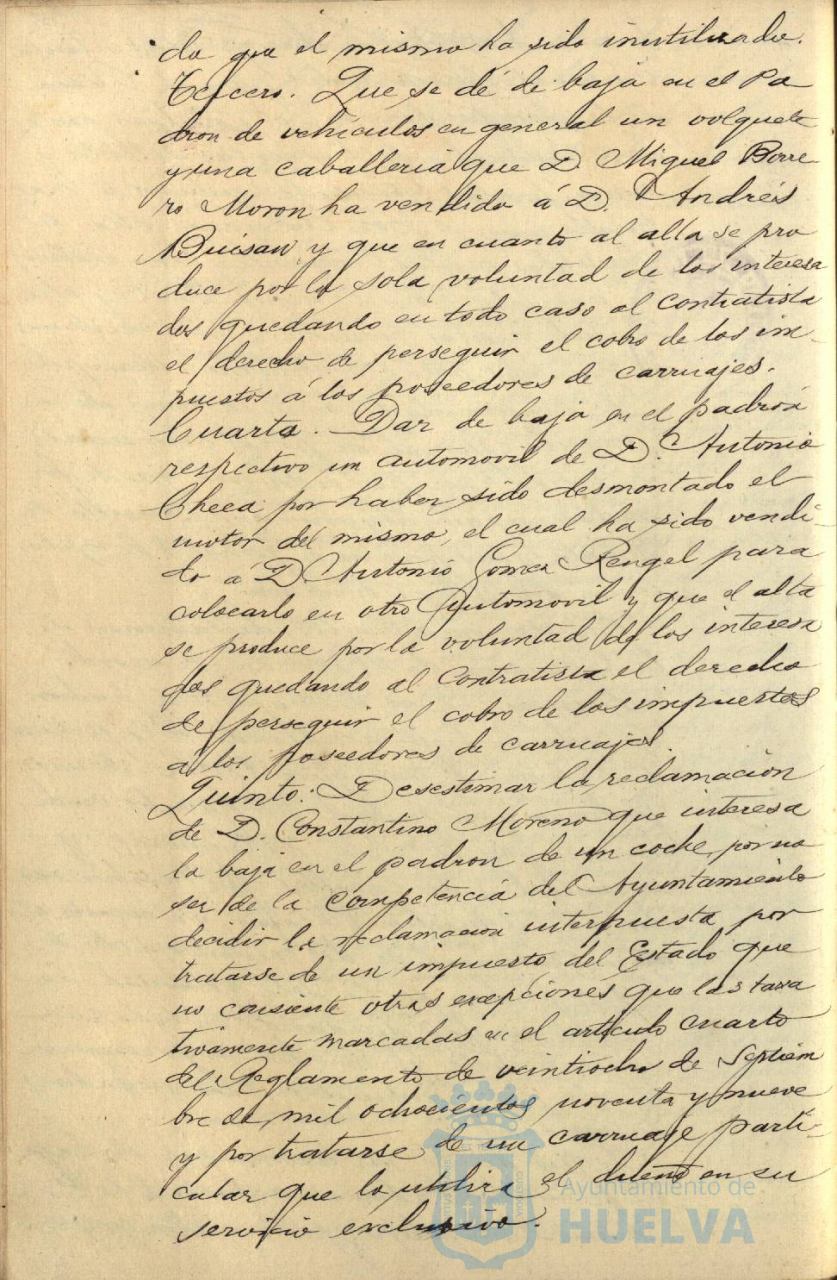 do que el mismo ha sido inutilizado.
Tercero. Que se dé de baja en el Pa
dron de vehiculos en general un volquete
y una caballeria que D. Miguel Borre
ro Moron ha vendido á D. Andrés
Buisan y que en cuanto al alta se pro
duce por la sola voluntad de los interesa
dos quedando en todo caso al contratista
el derecho de perseguir el cobro de los im-
puestos á los poseedores de carruajes.
Cuarto. Dar de baja en el padrón
respectivo un automovil de D. Antonio
Checa por haber sido desmontado el
motor del mismo, el cual ha sido vendi-
do á D Antonio Gomez Rengel para
colocarlo en otro automovil y que el alta
se produce por la voluntad de los interesa
dos quedando al Contratista el derecho
de perseguir el cobro de los impuestos
a los poseedores de carruajes.
Quinto: Desestimar la reclamacion
de D. Constantino Moreno que interesa
la baja en el padron de un coche, por no
ser de la competencia del Ayuntamiento
decidir la reclamacion interpuesta por
tratarse de un impuesto del Estado que
no consiente otras excepciones que las taxa
tivamente marcadas en el articulo cuarto
del Reglamento de veintiocho de Septiem
bre de mil ochocientos noventa y nueve
y por tratarse de un carruaje parti-
cular que lo utiliza el dueño en su
servicio exclusivo.
Ayuntamiento de
HUELVA